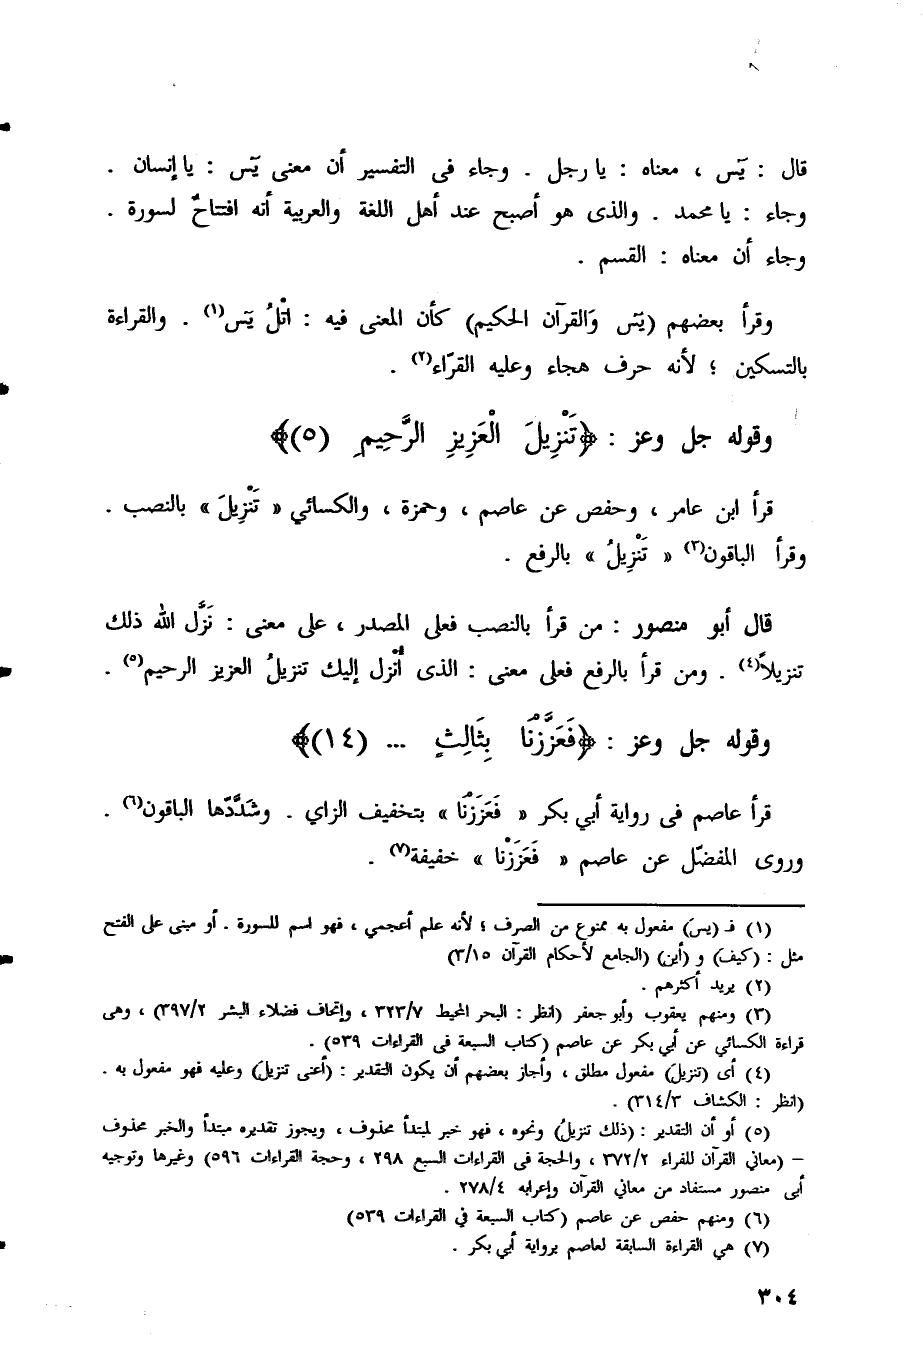 قال : يَس ، معناه : يا رجل . وجاء فى التفسير أن معنى يَس : يا إنسان .
وجاء : يا محمد . والذى هو أصبح عند أهل اللغة والعربية أنه افتتاحٌ لسورة .
وجاء أن معناه : القسم .
وقرأ بعضهم (يَسَ وَالقرآن الحكيم) كأن المعنى فيه : اتْلُ يَس(١) . والقراءة
بالتسكين ؛ لأنه حرف هجاء وعليه القرّاء(٢) .
وقوله جل وعز : ﴿تَنْزِيلَ الْعَزِيزِ الرَّحِيمِ (٥)﴾
قرأ ابن عامر ، وحفص عن عاصم ، وحمزة ، والكسائي « تَنْزِيلَ » بالنصب .
وقرأ الباقون(٣) « تَنْزِيلُ » بالرفع .
قال أبو منصور : من قرأ بالنصب فعلى المصدر ، على معنى : نَزَّل الله ذلك
تنزيلاً(٤) . ومن قرأ بالرفع فعلى معنى : الذى أُنْزل إليك تنزيلُ العزيز الرحيم(٥) .
وقوله جل وعز : ﴿فَعَزَّزْنَا بِثَالِثٍ ... (١٤)﴾
قرأ عاصم فى رواية أبي بكر « فَعَزَزْنَا » بتخفيف الزاي . وشَدَّدها الباقون(٦) .
وروى المفضّل عن عاصم « فَعَزَزْنا » خفيفة(٧) .
(١) فـ (يسَ) مفعول به ممنوع من الصرف ؛ لأنه علم أعجمي ، فهو اسم للسورة . أو مبنى على الفتح
مثل : (كيفَ) و (أينَ) (الجامع لأحكام القرآن ٣/١٥)
(٢) يريد أكثرهم .
(٣) ومنهم يعقوب وأبو جعفر (انظر : البحر المحيط ٣٢٣/٧ ، وإتحاف فضلاء البشر ٣٩٧/٢) ، وهى
قراءة الكسائي عن أبي بكر عن عاصم (كتاب السبعة فى القراءات ٥٣٩) .
(٤) أى (تنزيلَ) مفعول مطلق ، وأجاز بعضهم أن يكون التقدير : (أعنى تنزيلَ) وعليه فهو مفعول به .
(انظر : الكشاف ٣١٤/٣) .
(٥) أو أن التقدير : (ذلك تنزيلُ) ونحوه ، فهو خبر لمبتدأ محذوف ، ويجوز تقديره مبتدأ والخبر محذوف
– (معاني القرآن للفراء ٣٧٢/٢ ، والحجة فى القراءات السبع ٢٩٨ ، وحجة القراءات ٥٩٦) وغيرها وتوجيه
أبى منصور مستفاد من معاني القرآن وإعرابه ٢٧٨/٤ .
(٦) ومنهم حفص عن عاصم (كتاب السبعة في القراءات ٥٣٩)
(٧) هي القراءة السابقة لعاصم برواية أبي بكر .
٣٠٤